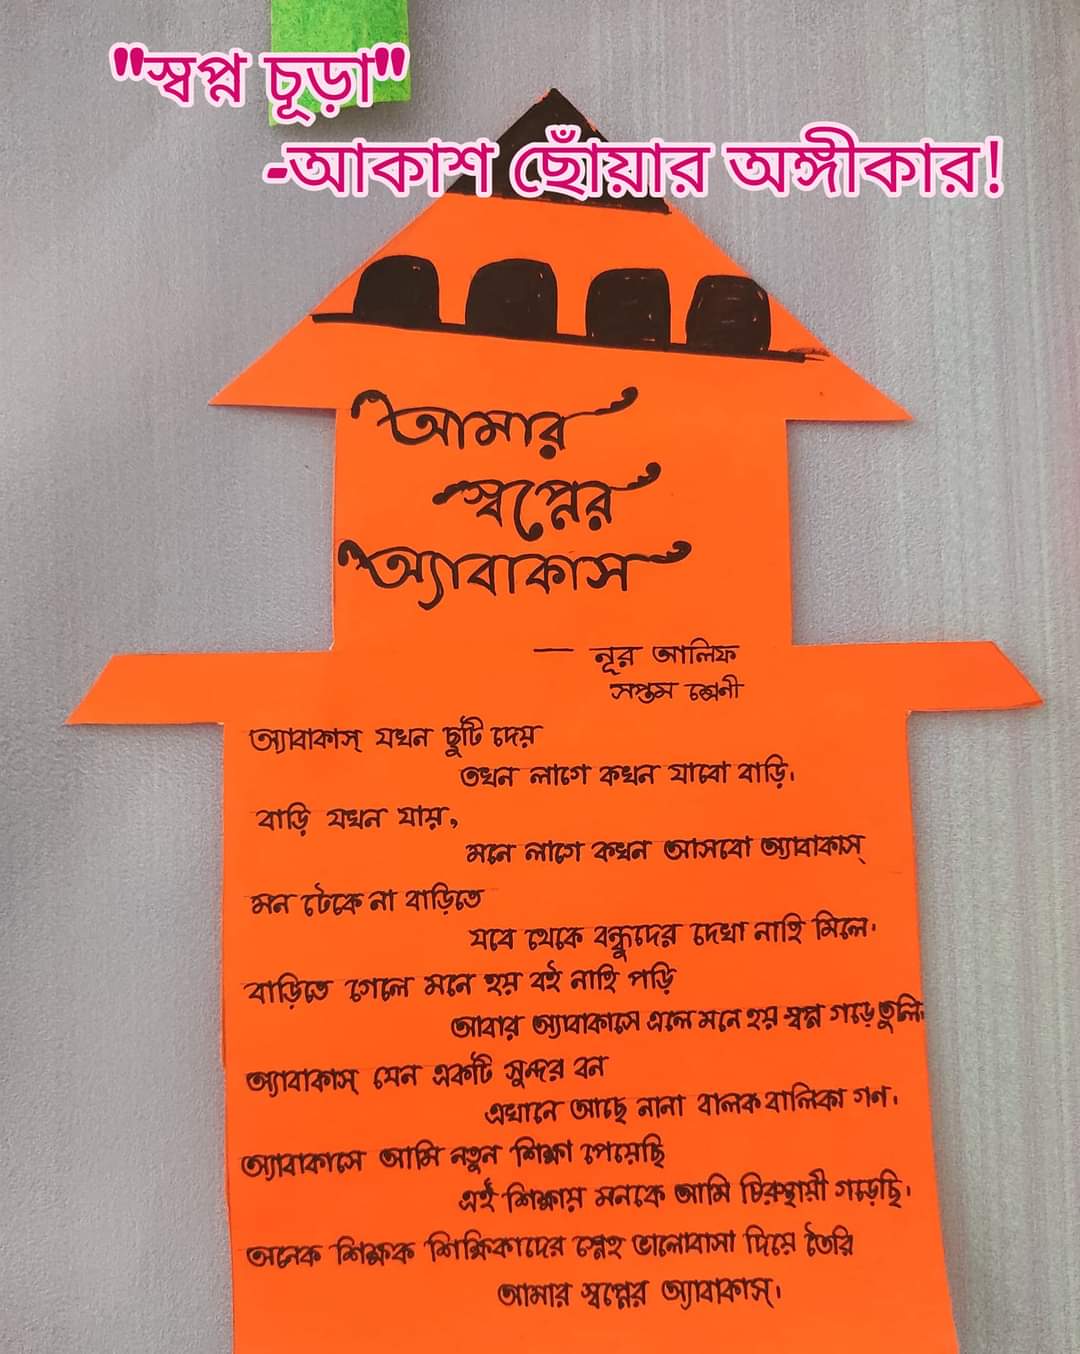 "স্বপ্ন চূড়া"
-আকাশ ছোঁয়ার অঙ্গীকার!
আমার
স্বপ্নের
অ্যাবাকাস
— নূর আলিফ
সপ্তম শ্রেনী
অ্যাবাকাস্ যখন ছুটি দেয়
তখন লাগে কখন যাবো বাড়ি।
বাড়ি যখন যায়,
মনে লাগে কখন আসবো অ্যাবাকাস্
মন টেকে না বাড়িতে
যবে থেকে বন্ধুদের দেখা নাহি মিলে।
বাড়িতে গেলে মনে হয় বই নাহি পড়ি
আবার অ্যাবাকাসে এলে মনে হয় স্বপ্ন গড়ে তুলি।
অ্যাবাকাস্ যেন একটি সুন্দর বন
এখানে আছে নানা বালক বালিকা গণ।
অ্যাবাকাসে আমি নতুন শিক্ষা পেয়েছি
এই শিক্ষায় মনকে আমি চিরস্থায়ী গড়েছি।
অনেক শিক্ষক শিক্ষিকাদের স্নেহ ভালোবাসা দিয়ে তৈরি
আমার স্বপ্নের অ্যাবাকাস্।